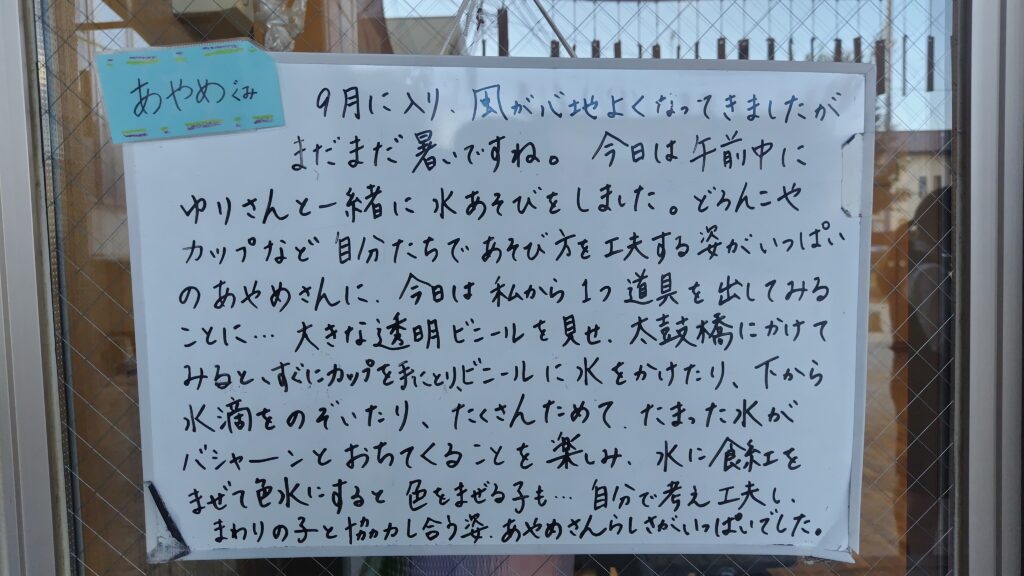 あやめぐみ
9月に入り、風が心地よくなってきましたが
まだまだ暑いですね。今日は午前中に
ゆりさんと一緒に水あそびをしました。どろんこや
カップなど自分たちであそび方を工夫する姿がいっぱい
のあやめさんに、今日は私から1つ道具を出してみる
ことに…大きな透明ビニールを見せ、太鼓橋にかけて
みると、すぐにカップを手にとり、ビニールに水をかけたり、下から
水滴をのぞいたり、たくさんためて、たまった水が
バシャーンとおちてくることを楽しみ、水に食紅を
まぜて色水にすると色をまぜる子も…自分で考え工夫し、
まわりの子と協力し合う姿、あやめさんらしさがいっぱいでした。